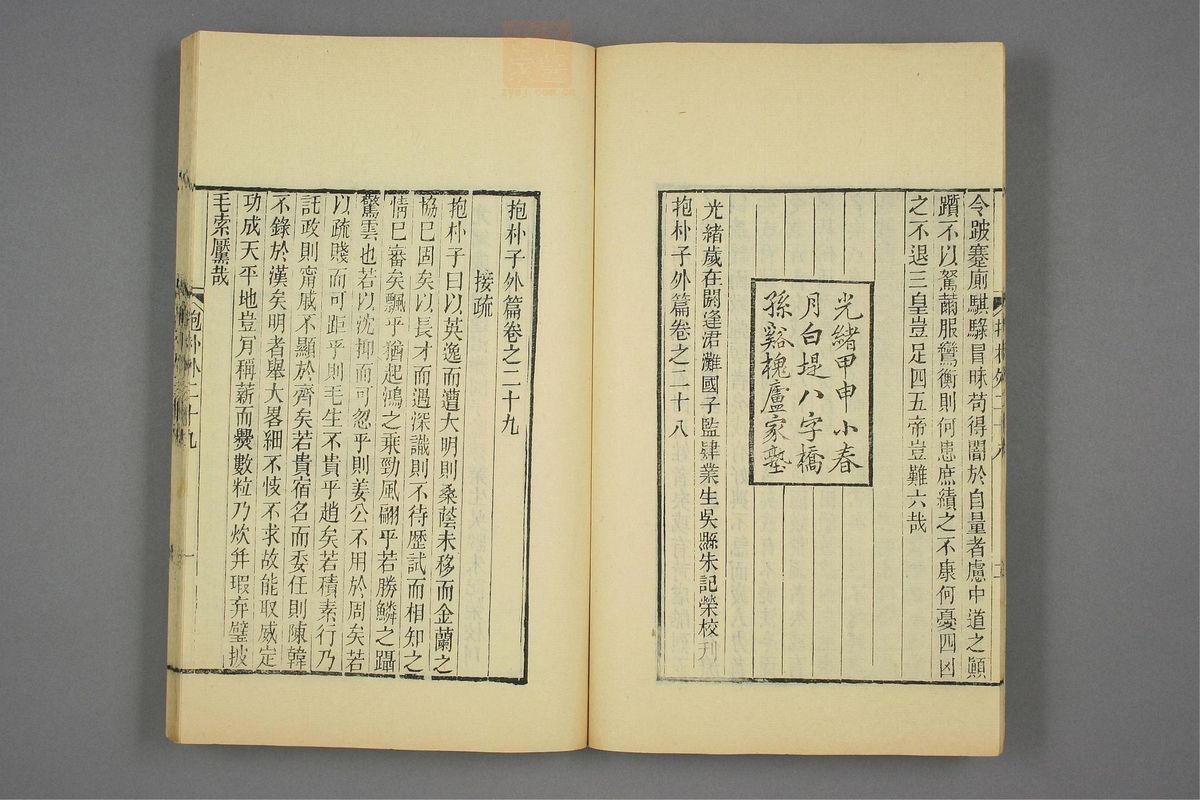 令跛蹇廁騏騄冒昧苟得闇於自量者慮中道之顚
躓不以駑薾服鸞衡則何患庶績之不康何憂四凶
之不退三皇豈足四五帝豈難六哉
光緒甲申小春
月白堤八字橋
孫谿槐廬家塾
光緒歲在閼逢涒灘國子監肄業生吳縣朱記榮校
抱朴子外篇卷之二十八
抱朴子外篇卷之二十九
接疏
抱朴子曰以英逸而遭大明則桑蔭未移而金蘭之
協已固矣以長才而遇深識則不待歷試而相知之
情已審矣飄乎猶起鴻之乘勁風翩乎若勝鱗之躡
驚雲也若以沈抑而可忽乎則姜公不用於周矣若
以疏賤而可距乎則毛生不貴乎趙矣若積素行乃
託政則甯戚不顯於齊矣若貴宿名而委任則陳韓
不錄於漢矣明者舉大畧細不忮不求故能取威定
功成天平地豈肎稱薪而爨數粒乃炊并瑕弃璧披
毛索黶哉
抱朴外二十九
一